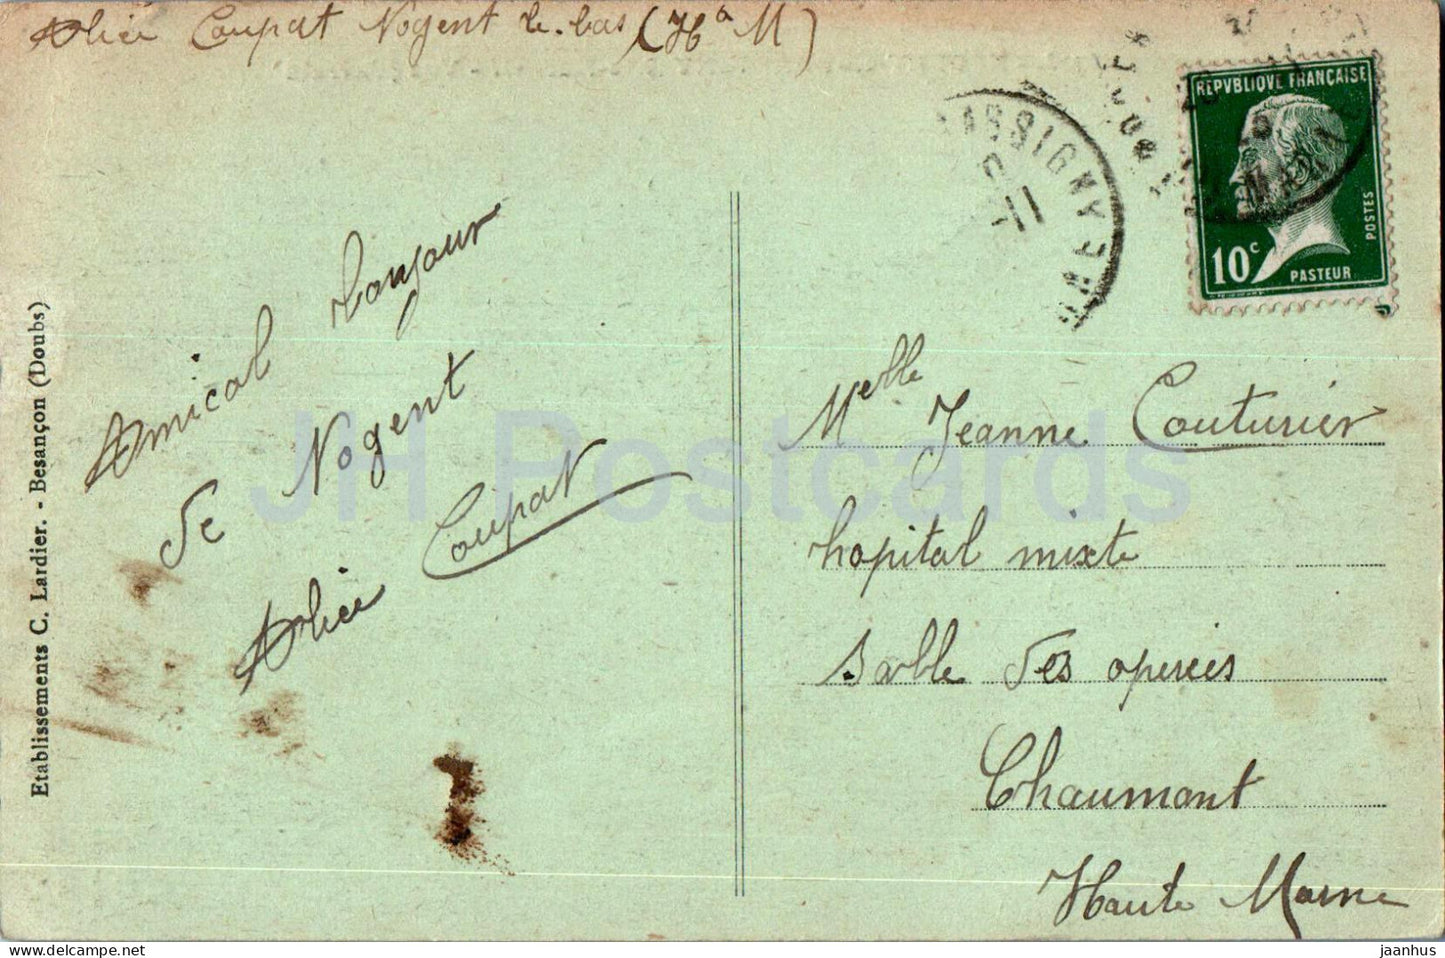 Alice Coupat Nogent le-bas (Hte M)
Amical bonjour
de Nogent
Alice Coupat
Etablissements C. Lardier. - Besançon (Doubs)
REPVBLIQVE FRANÇAISE
POSTES
10c
PASTEUR
ASSIGNY
11
Melle Jeanne Couturier
hopital mixte
Salle des operées
Chaumont
Haute Marne
JH Postcards
hipstamp.com/store/jh-postcards
jaanhus